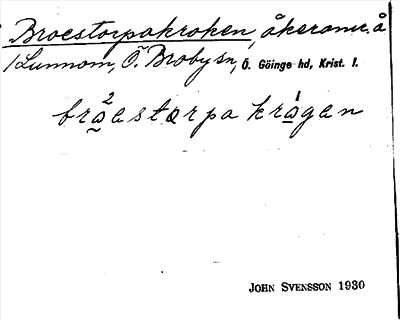 Broestorpakroken, åkeromr. å
/Lunnom, Ö. Broby sn, Ö. Göinge hd, Krist. l.
bra̰²estərpa krågen
JOHN SVENSSON 1930